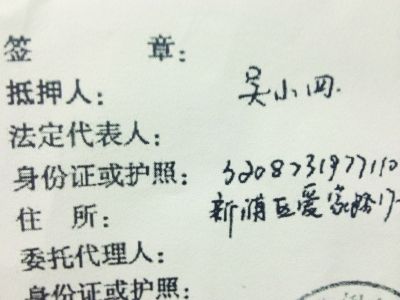 签 章：
抵押人： 吴小四
法定代表人：
身份证或护照： 3208731977110
住 所： 新浦区爱家路17-
委托代理人：
身份证或护照：